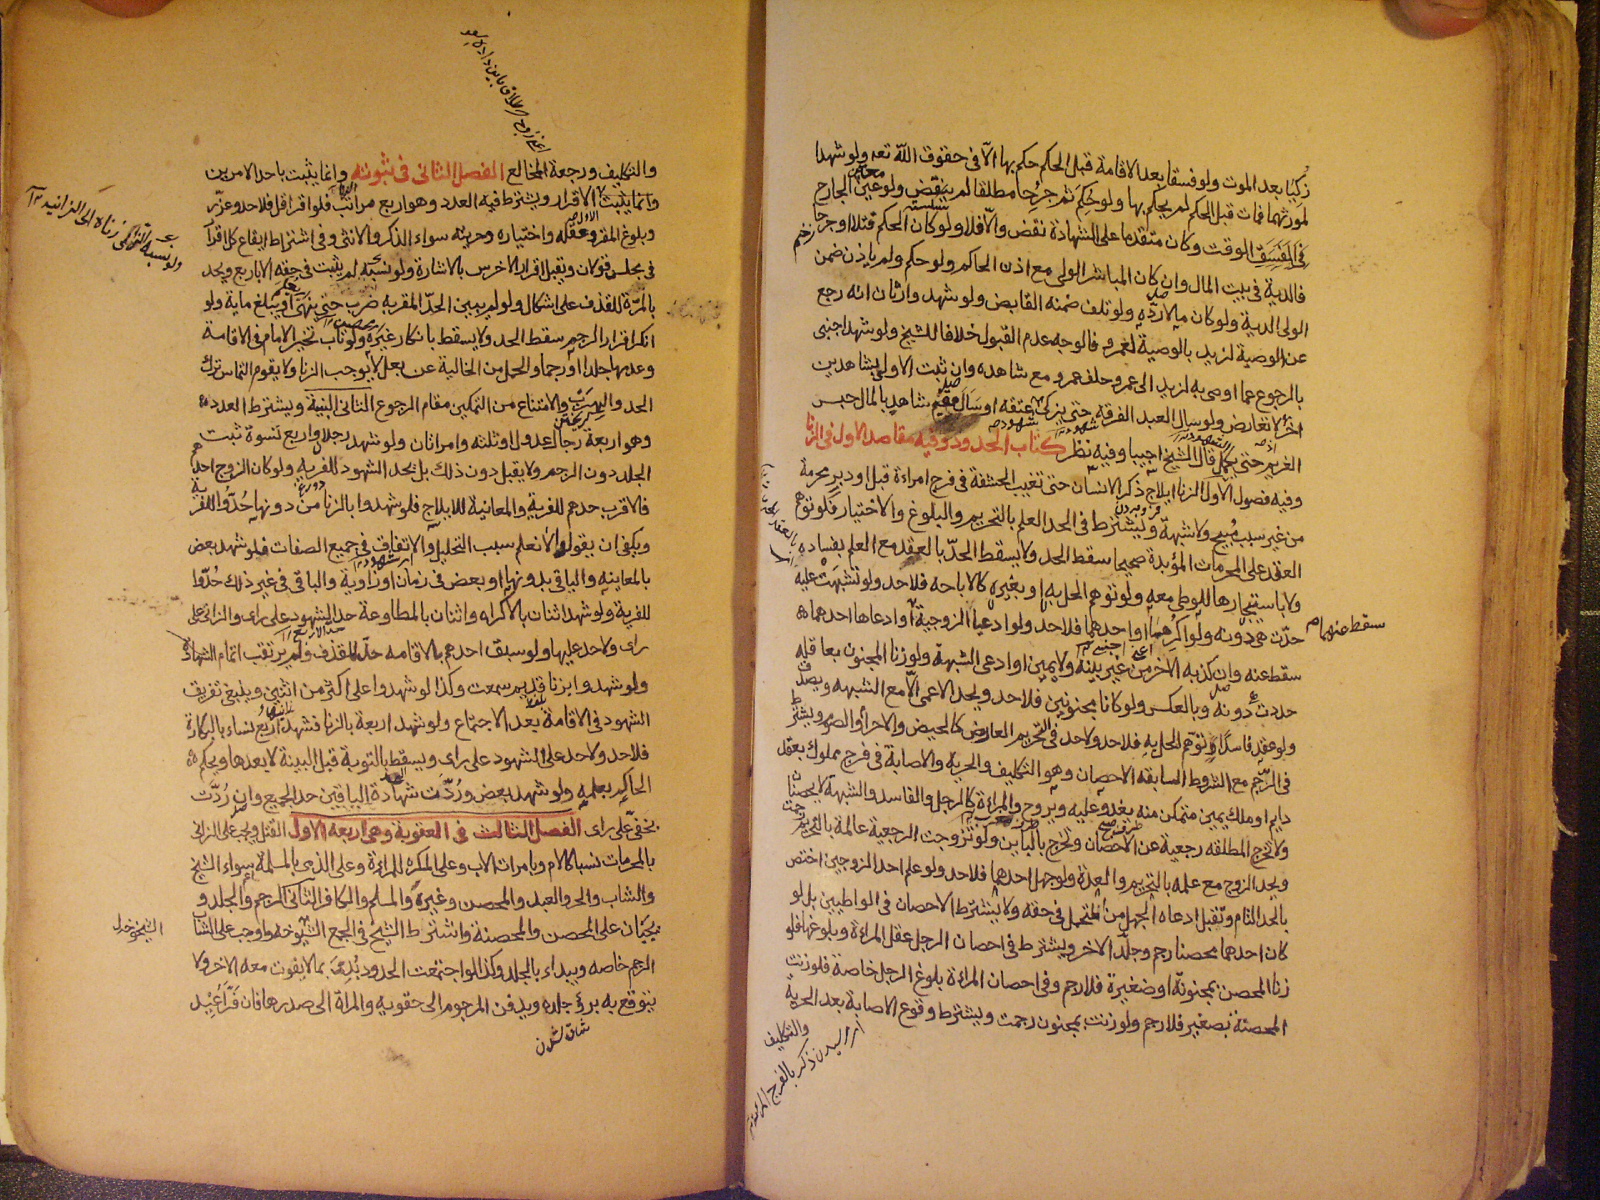 زكيا بعد الموت ولو فسقا بعد الاقامة قبل الحكم حكم بها الا فى حقوق الله تعه ولو شهدا
لمورثهما فمات قبل الحكم لم يحكم بها ولو حكم ثم جرحا مطلقا لم ينقض ولو عين الجارح
الوقت وكان متقدما على الشهادة نقض والا فلا ولو كان الحكم قتلا او جرحا
فالدية فى بيت المال وان كان المباشر الولى مع اذن الحاكم ولو حكم ولم ياذن ضمن
الولى الدية ولو كان مالا رده ولو تلف ضمنه القابض ولو شهد وارثان انه رجع
عن الوصية لزيد بالوصية لعمرو فالوجه عدم القبول خلافا للشيخ ولو شهد اجنبى
بالرجوع عما اوصى به لزيد الى عمرو حلف عمرو مع شاهده وان ثبت الاولى بشاهدين
اخر لا تعارض ولو سال العبد الفرقة حتى يزكى عتقه او سال مقيم شاهد بالمال حبس
الغريم حتى يكمل قال الشيخ اجيبا وفيه نظر كتاب الحدود وفيه مقاصد الاول فى الزنا
وفيه فصول الاول الزنا ايلاج ذكر الانسان حتى تغيب الحشفة فى فرج امراءة قبل او دبر محرمة
من غير سبب مبيح ولا شبهة ويشترط فى الحد العلم بالتحريم والبلوغ والاختيار فلو توهم
العقد على المحرمات المؤبدة صحيحا سقط الحد ولا يسقط الحد بالعقد مع العلم بفساده
ولا باستيجارها للوطى معه ولو توهم الحل به او بغيره كالاباحه فلا حد ولو تشبهت عليه
حدت هى دونه ولو اكرهما او احدهما فلا حد ولو ادعيا الزوجية او ادعاها احدهما
سقط عنه وان كذبه الاخر من غير بينة ولا يمين او ادعى الشبهة ولو زنا المجنون بعاقلة
حدت دونه وبالعكس ولو كانا مجنونين فلا حد ويحد الاعمى الا مع الشبهه ويصدق
ولو عقد فاسدا وتوهم الحل به فلا حد ولا حد فى التحريم العارض كالحيض والاحرام والصوم ويشترط
فى الرجم مع الشروط السابقه الاحصان وهو التكليف والحريه والاصابة فى فرج مملوك بعقد
دايم او ملك يمين متمكن منه يغدو عليه ويروح والمراءة كالرجل والفاسد والشبهة لا يحصنان
ولا تخرج المطلقه رجعية عن الاحصان وتخرج بالباين ولو تزوجت الرجعية عالمة بالتحريم رجمت
ويحد الزوج مع علمه بالتحريم والعدة ولو جهل احدهما فلا حد ولو علم احد الزوجين اختص
بالحد التام وتقبل ادعاء الجهل من المتحمل فى حقه ولا يشترط الاحصان فى الواطيين بل لو
كان احدهما محصنا رجم وجلد الاخر ويشترط فى احصان الرجل عقل المراءة وبلوغها فلو
زنا المحصن بمجنونة او صغيرة فلا رجم وفى احصان المراءة بلوغ الرجل خاصة فلو زنت
المحصنة بصغير فلا رجم ولو زنت بمجنون رجمت ويشترط وقوع الاصابة بعد الحرية
والتكليف
سقط عنهما م
والتكليف ورجعة المخالع الفصل الثانى فى ثبوته وانما يثبت باحد الامرين
وانما يثبت الاقرار ويشترط فيه العدد وهو اربع مراتب فلو اقر اقل فلا حد وعزر
وبلوغ المقر وعقله واختياره وحريته سواء الذكر والانثى وفى اشتراط ايقاع كل اقرار
فى مجلس قولان ويقبل اقرار الاخرس بالاشارة ولو نسبه لم يثبت فى حقه الا باربع ويحد
بالمرة للقذف على اشكال ولو لم يبين الحد المقر به ضرب حتى ينهى او يبلغ ماية ولو
انكر اقرار الرجم سقط الحد ولا يسقط بانكار غيره ولو تاب تخير الامام فى الاقامة
وعدمها جلدا او رجما والحمل من الخالية عن بعل لا يوجب الزنا ولا يقوم التماس ترك
الحد والهرب والامتناع من التمكين مقام الرجوع الثانى البينة ويشترط العدد
وهو اربعة رجال عدول او ثلثه وامراتان ولو شهد رجلان واربع نسوة ثبت
الجلد دون الرجم ولا يقبل دون ذلك بل يحد الشهود للفرية ولو كان الزوج احدهم
فالاقرب حدهم للفرية والمعاينة للايلاج فلو شهدوا بالزنا من دونها حدوا للفرية
ويكفى ان يقولوا لا نعلم سبب التحليل والاتفاق فى جميع الصفات فلو شهد بعض
بالمعاينه والباقى بدونها او بعض فى زمان او زاوية والباقى فى غير ذلك حدوا
للفرية ولو شهد اثنان بالاكراه واثنان بالمطاوعة حد الشهود على راى والزانى على
راى ولا حد عليها ولو سبق احدهم بالاقامه حد للقذف ولم يرتقب اتمام الشهادة
ولو شهدوا بزنا قديم سمعت وكذا لو شهدوا على اكثر من اثنين وينبغى تفريق
الشهود فى الاقامة بعد الاجتماع ولو شهد اربعة بالزنا فشهد اربع نساء بالبكارة
فلا حد ولا حد على الشهود على راى ويسقط بالتوبة قبل البينة لا بعدها ويحكم
الحاكم بعلمه ولو شهد بعض وردت شهادة الباقين حد الجميع وان ردت
بخفى على راى الفصل الثالث فى العقوبة وهى اربعة الاول القتل ويجب على الزانى
بالمحرمات نسبا كالام وبامراة الاب وعلى المكره للمراءة وعلى الذمى بالمسلمة سواء الشيخ
والشاب والحر والعبد والمحصن وغيره والمسلم والكافر الثانى الرجم والجلد و
يجبان على المحصن والمحصنة واشترط الشيخ فى الجمع الشيخوخه واوجب على الشاب
الرجم خاصه ويبداء بالجلد وكذا لو اجتمعت الحدود بدئ بما لا يفوت معه الاخر ولا
يتوقع به برؤ جلده ويدفن المرجوم الى حقويه والمراة الى صدرها فان فر اعيد